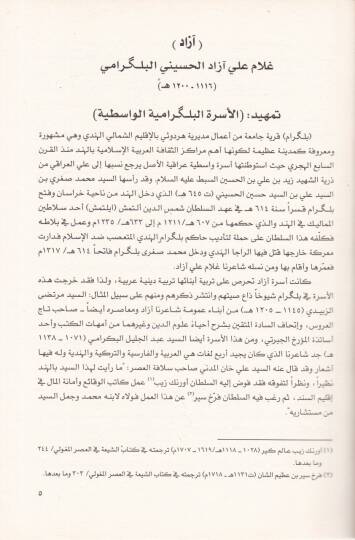 ( آزاد )
غلام علي آزاد الحسيني البلگرامي
(١١١٦ - ١٢٠٠ هـ)
تمهيد: (الأسرة البلگرامية الواسطية)
(بلگرام) قرية جامعة من أعمال مديرية هردوئي بالإقليم الشمالي الهندي وهي مشهورة
ومعروفة كمدينة عظيمة لكونها أهم مراكز الثقافة العربية الإسلامية بالهند منذ القرن
السابع الهجري حيث استوطنتها أسرة واسطية عراقية الأصل يرجع نسبها إلى علي العراقي من
ذرية الشهيد زيد بن علي بن الحسين السبط عليه السلام. وقد رأسها السيد محمد صغرى بن
السيد علي بن السيد حسين الحسيني (ت ٦٤٥ هـ) الذي دخل الهند من ناحية خراسان وفتح
بلگرام قسراً سنة ٦١٤ هـ في عهد السلطان شمس الدين ألتمش (ايلتمش) أحد سلاطين
المماليك في الهند والذي حكمها من ٦٠٧ هـ/ ١٢١١م إلى ٦٣٣هـ/ ١٢٣٥م وعمل في بلاطه
فكلفه هذا السلطان على حملة لتأديب حاكم بلگرام الهندي المتعصب ضد الإسلام فدارت
معركة خارجها قتل فيها الراجا الهندي ودخل محمد صغرى بلگرام فاتحاً ٦١٤ هـ/ ١٢١٧م
فعمّرها وأقام بها ومن نسله شاعرنا غلام علي آزاد.
كانت أسرة آزاد تحرص على تربية أبنائها تربية دينية عربية، ولذا فقد خرجت هذه
الأسرة في بلگرام شيوخاً ذاع صيتهم وانتشر ذكرهم ومنهم على سبيل المثال: السيد مرتضى
الزبيدي (١١٤٥ - ١٢٠٥ هـ) من أبناء عمومة شاعرنا آزاد ومعاصره أيضاً – صاحب تاج
العروس، وإتحاف السادة المتقين بشرح أحياء علوم الدين وغيرهما من أمهات الكتب وأحد
أساتذة المؤرخ الجبرتي، ومن هذا الأسرة أيضا السيد عبد الجليل البكرامي (١٠٧١ - ١١٣٨
هـ) جد شاعرنا الذي كان يجيد أربع لغات هي العربية والفارسية والتركية والهندية وله فيها
أشعار وقد قال عنه السيد علي خان المدني صاحب سلافة العصر: "ما رأيت لهذا السيد بالهند
نظيراً، ونظراً لتفوقه فقد فوض إليه السلطان أورنك زيب(١) عمل كاتب الوقائع وأمانة المال في
إقليم السند، ثم رغب فيه السلطان فرخ سير(٢) عن هذا العمل فولاه لابنه محمد وجعل السيد
من مستشاريه.
(١) أورنك زيب عالم كير (١٠٢٨ - ١١١٨هـ/١٦١٩ - ١٧٠٧م) ترجمته في كتاب الشيعة في العصر المغولي/ ٢٤٤
وما بعدها.
(٢) فرخ سير بن عظيم الشان (ت١١٣١هـ - ١٧١٨م) ترجمته في كتاب الشيعة في العصر المغولي/ ٣٠٣ وما بعدها.
٥